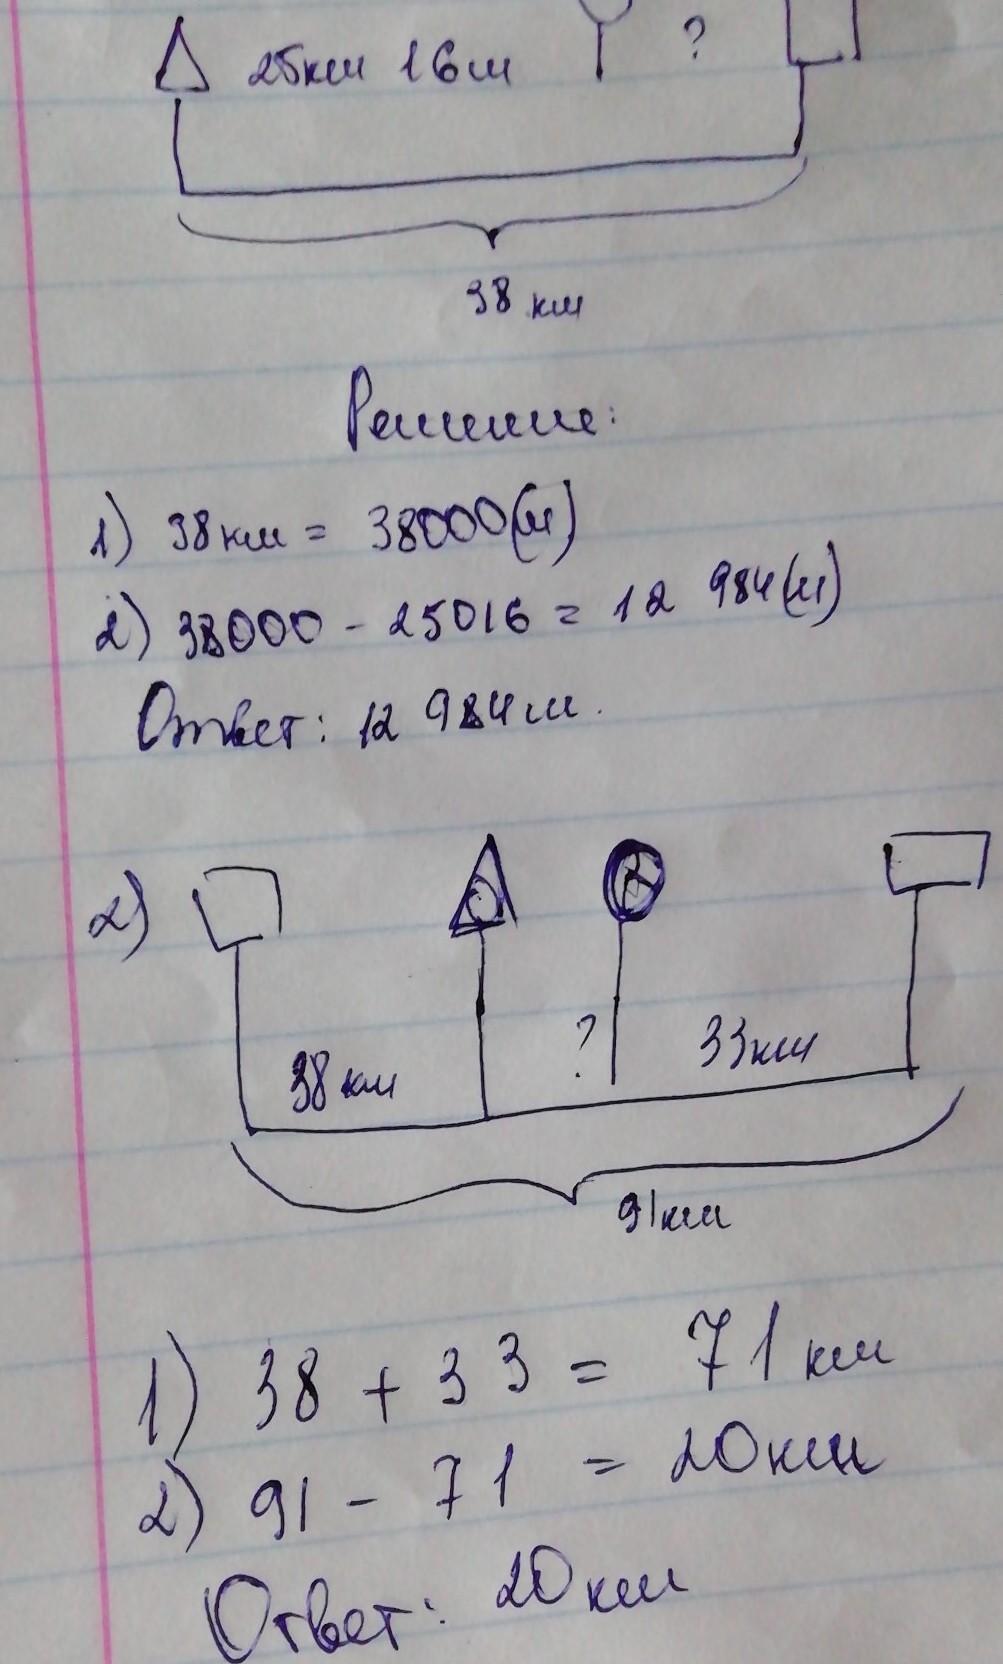 25км 16м ?
38 км
Решение:
1) 38км = 38000(м)
2) 38000 - 25016 = 12 984(м)
Ответ: 12 984м.
2)
38км ? 33км
91км
1) 38 + 33 = 71км
2) 91 - 71 = 20км
Ответ: 20км